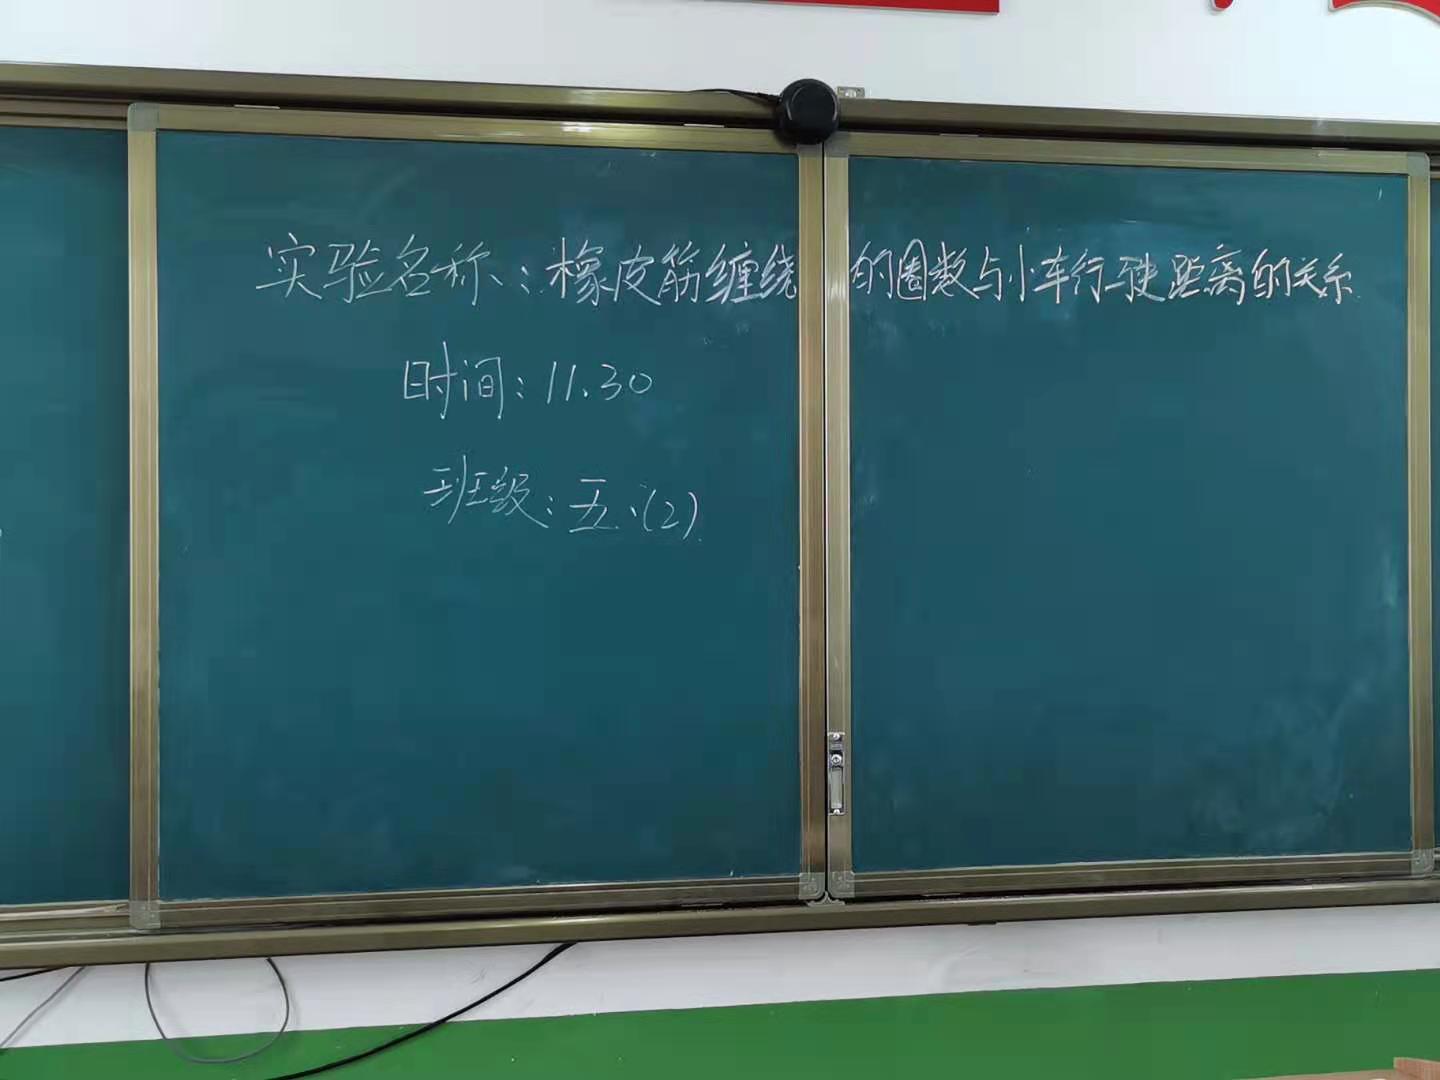 实验名称:橡皮筋缠绕的圈数与小车行驶距离的关系
时间:11.30
班级:五.(2)